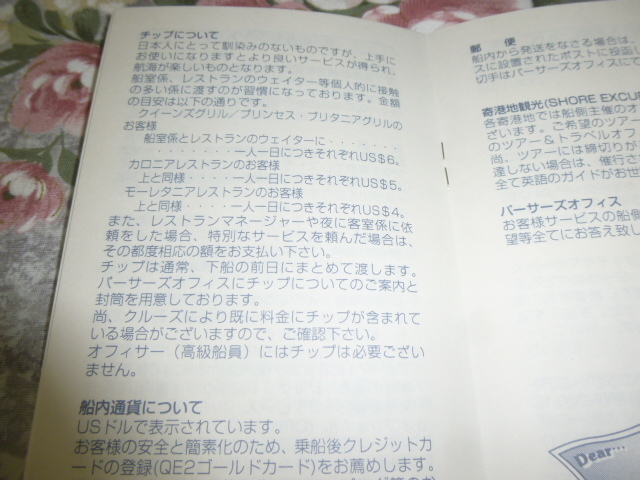 チップについて
日本人にとって馴染みのないものですが、上手に
お使いになりますとより良いサービスが得られ、
航海が楽しいものとなります。
船室係、レストランのウェイター等個人的に接触
の多い係に渡すのが習慣になっております。金額
の目安は以下の通りです。
クィーンズグリル／プリンセス・ブリタニアグリルの
お客様
船室係とレストランのウェイターに・・・・・・・
・・・・・・・・一人一日につきそれぞれUS$6。
カロニアレストランのお客様
上と同様・・・・一人一日につきそれぞれUS$5。
モーレタニアレストランのお客様
上と同様・・・・一人一日につきそれぞれUS$4。
また、レストランマネージャーや夜に客室係に依
頼をした場合、特別なサービスを頼んだ場合は、
その都度相応の額をお支払い下さい。
チップは通常、下船の前日にまとめて渡します。
パーサーズオフィスにチップについてのご案内と
封筒を用意しております。
尚、クルーズにより既に料金にチップが含まれて
いる場合がございますので、ご確認下さい。
オフィサー（高級船員）にはチップは必要ござい
ません。
船内通貨について
USドルで表示されています。
お客様の安全と簡素化のため、乗船後クレジットカ
ードの登録(QE2ゴールドカード)をお薦めします。
郵 便
船内から発送をなさる場合は、
スに設置されたポストに投函
切手はパーサーズオフィスにて
寄港地観光(SHORE EXCUR
各寄港地では船側主催のオ
ざいます。ご希望のツアー
のツアー＆トラベルオフ
尚、ツアーには締切りが
達しない場合は、催行さ
全て英語のガイドがお世
パーサーズオフィス
お客様サービスの船側
望等全てにお答え致し
Dear...